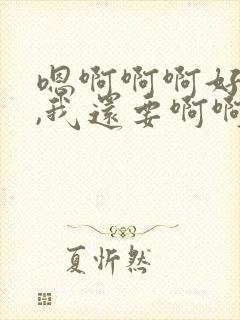 嗯啊啊啊好
,我還要啊啊
夏忻然